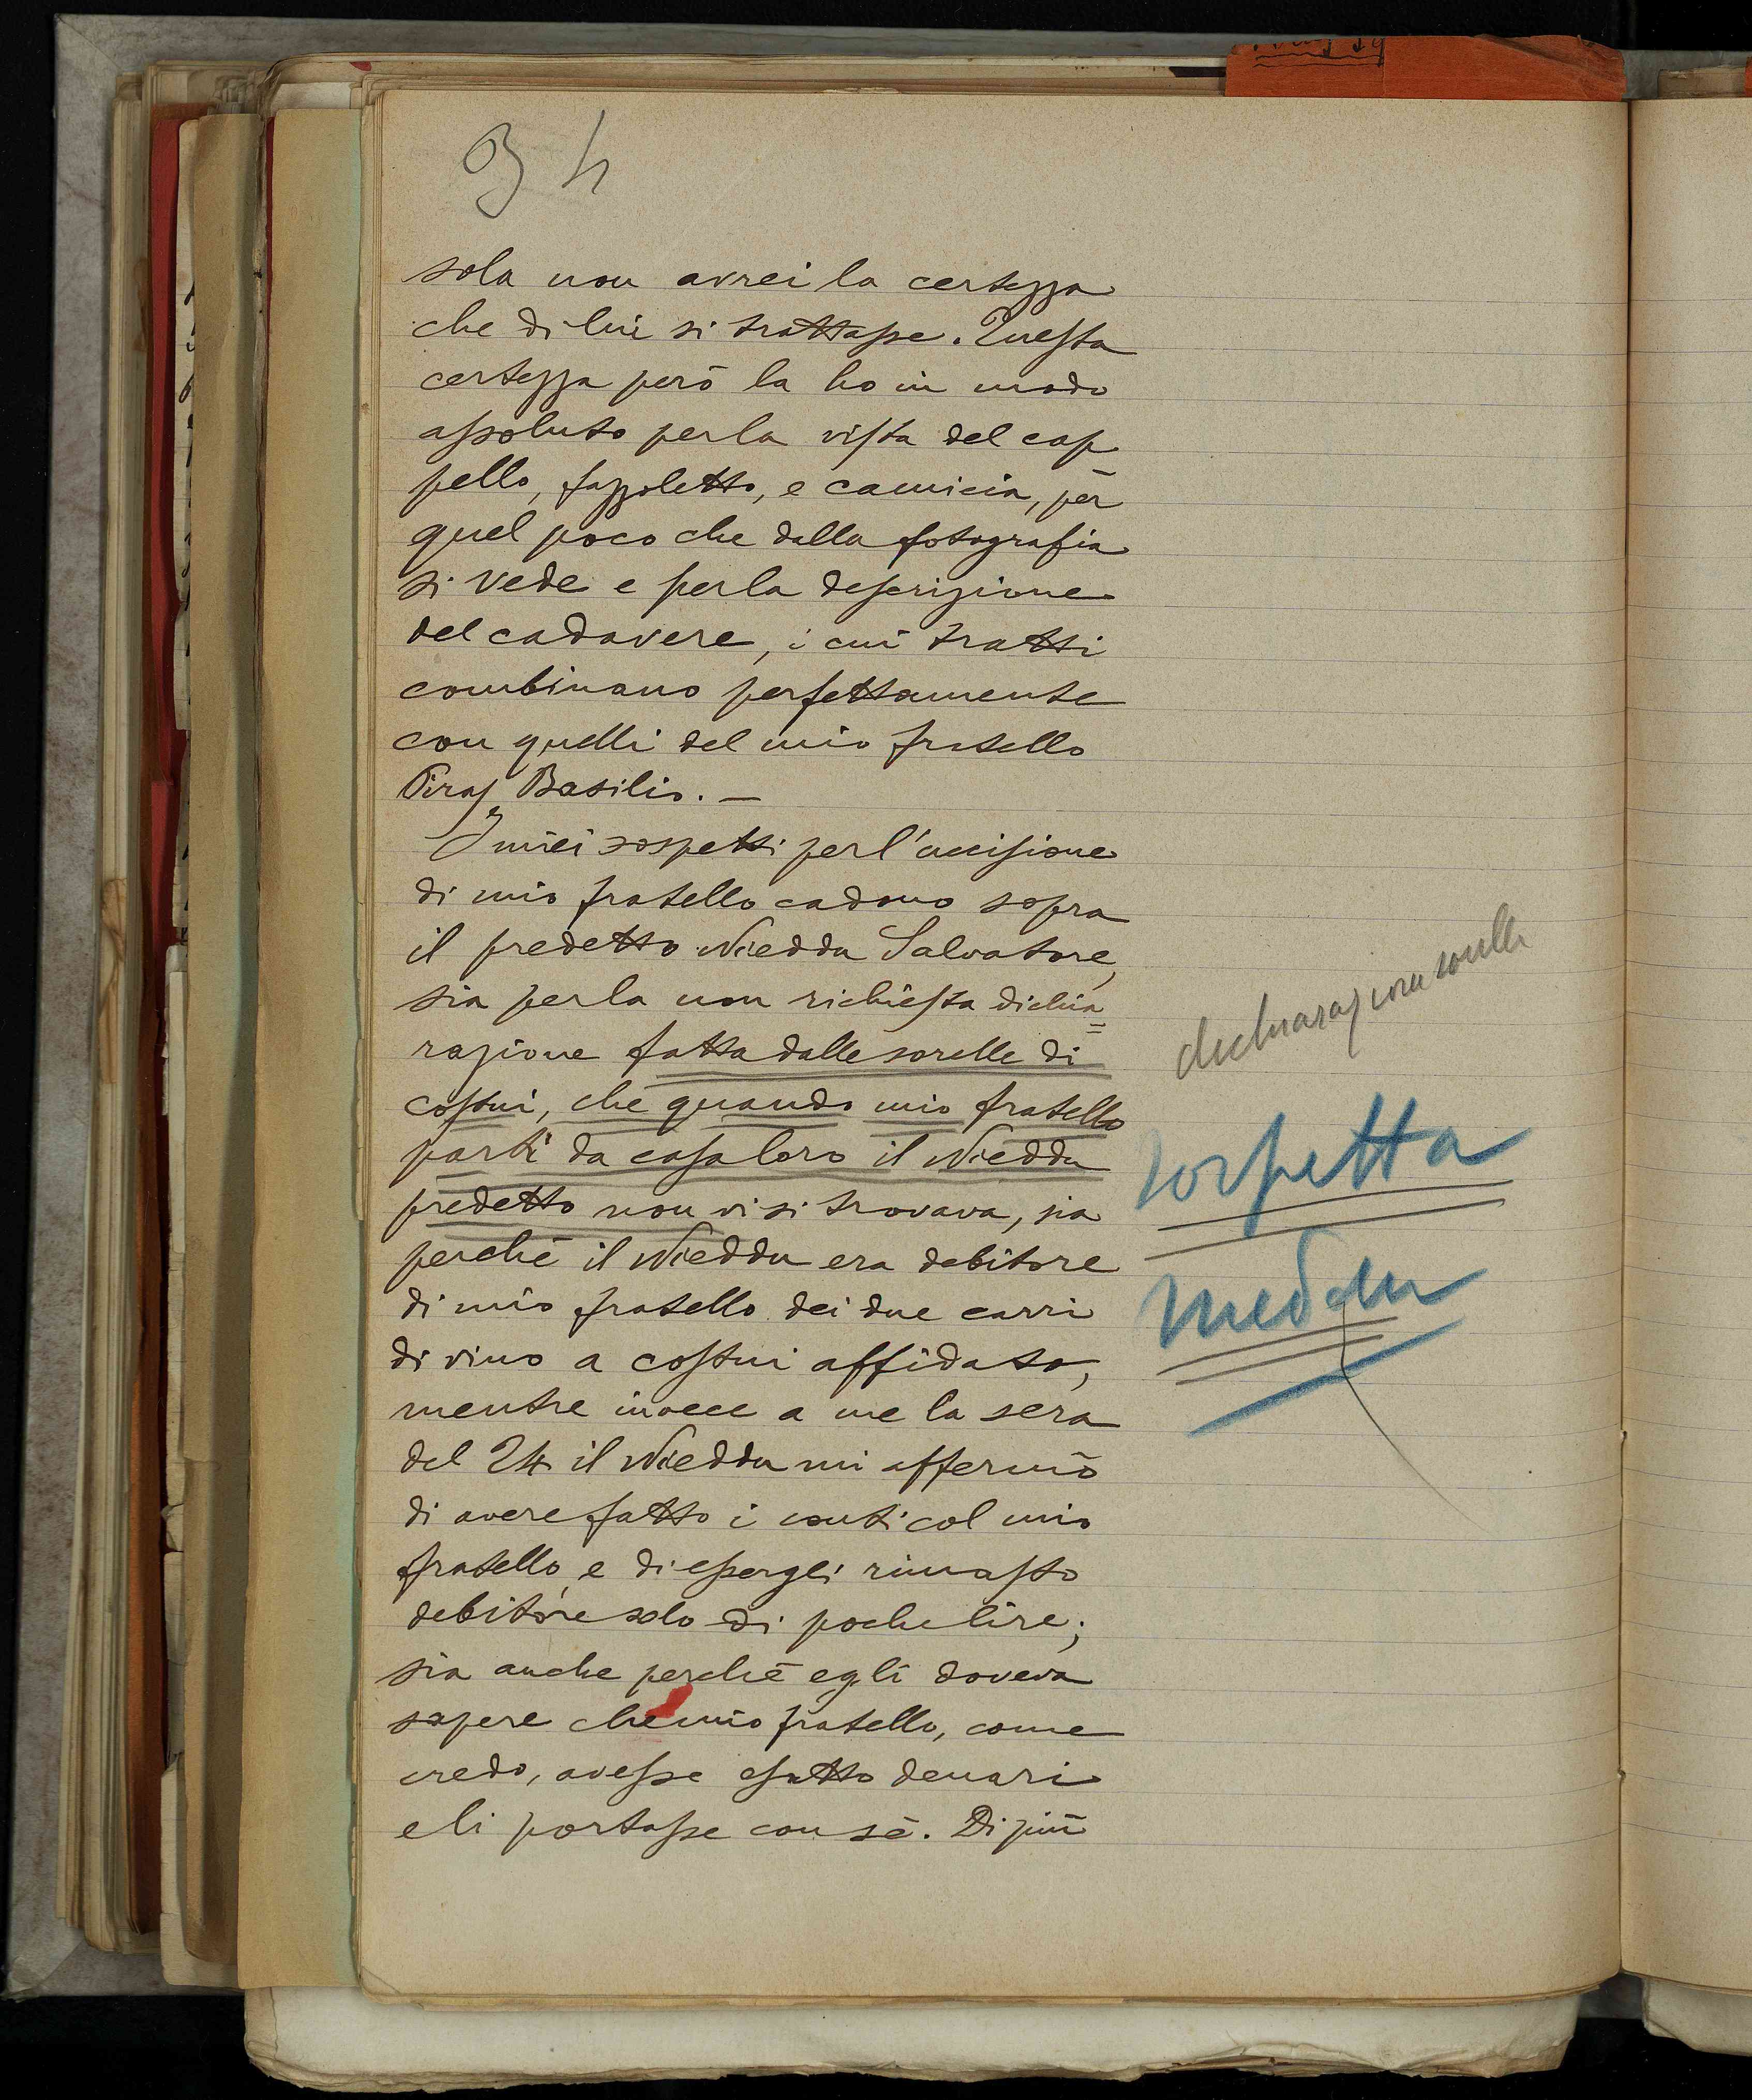 34
sola non avrei la certezza
che di lui si trattasse. Questa
certezza però la ho in modo
assoluto per la vista del cap
pello, fazzoletto, e camicia, per
quel poco che dalla fotografia
si vede e per la descrizione
del cadavere, i cui tratti
combinano perfettamente
con quelli del mio fratello
Piras Basilio. —
I miei sospetti per l'uccisione
di mio fratello cadono sopra
il predetto Nieddu Salvatore,
sia per la non richiesta dichia=
razione fatta dalle sorelle di
costui, che quando mio fratello
partì da casa loro il Nieddu
predetto non vi si trovava, sia
perchè il Nieddu era debitore
di mio fratello dei due carri
di vino a costui affidato,
mentre invece a me la sera
del 24 il Nieddu mi affermò
di avere fatto i conti col mio
fratello e di essergli rimasto
debitore solo di poche lire;
sia anche perchè egli doveva
sapere che mio fratello, come
credo, avesse esatto denari
e li portasse con sè. Di più
dichiarazione sorelle
sospetta
Nieddu